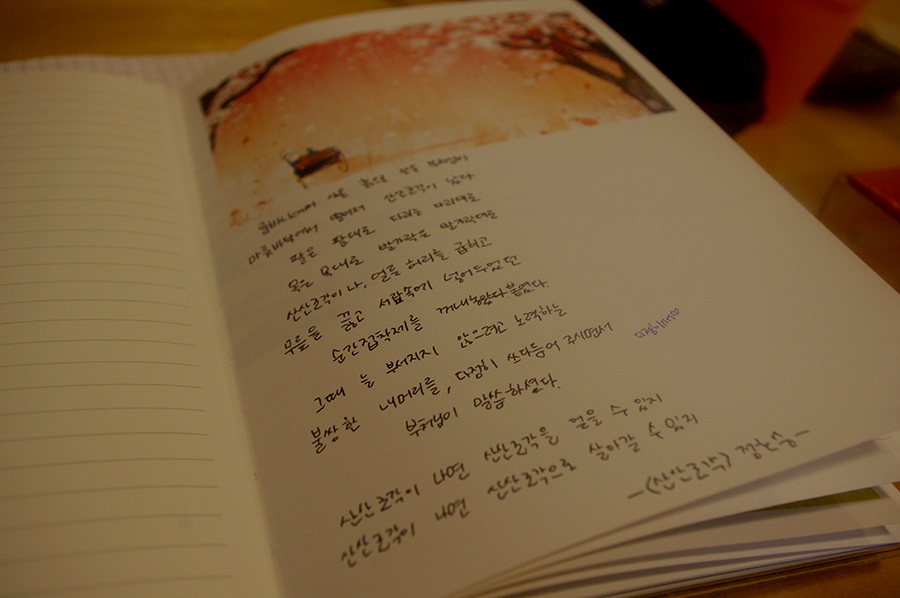 룸비니에서 사온 흙으로 만든 부처님이
마룻바닥에서 떨어져 산산조각이 났다.
팔은 팔대로 다리는 다리대로
목은 목대로 발가락은 발가락대로
산산조각이 나, 얼른 허리를 굽히고
무릎을 꿇고 서랍속에 넣어두었던
순간접착제를 꺼내놓았다 붙였다.
그때 늘 부서지지 않으려고 노력하는
불쌍한 내머리를, 다정히 쓰다듬어 주시면서
부처님이 말씀하셨다.
산산조각이 나면 산산조각을 얻을 수 있지
산산조각이 나면 산산조각으로 살아갈 수 있지
-<산산조각> 정호승-